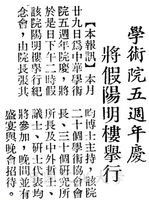 學術院五週年慶
將假陽明樓舉行
【本報訊】本月
廿九日爲中華學術
院五週年院慶，將
於是日下午二時假
該院陽明樓舉行紀
念會，由院長張其
昀博士主持，該院
二十個學術協會會
長、三十個研究所
所長及中外哲士、
議士、研士代表均
將參加，晚間並有
盛宴與晚會招待。